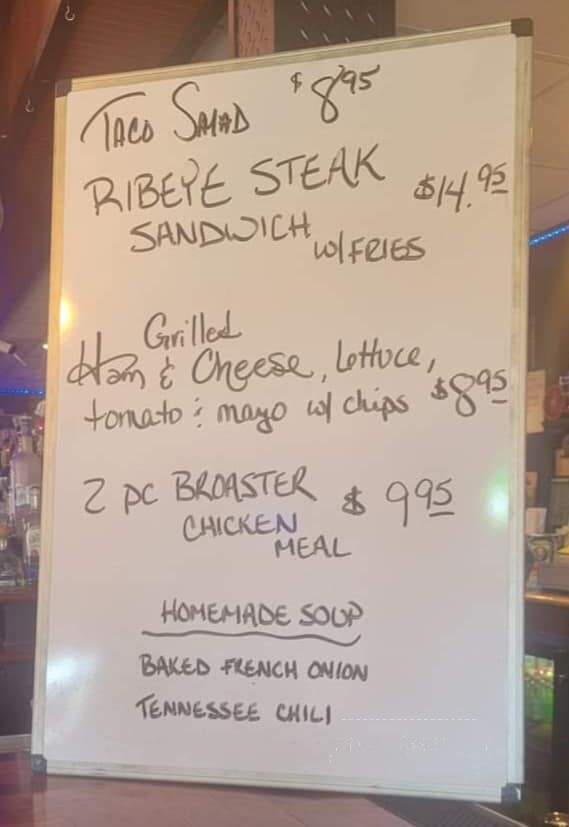 TACO SALAD $8.95
RIBEYE STEAK $14.95
SANDWICH
W/FRIES
Grilled
Ham & Cheese, Lettuce,
tomato & mayo w/ chips $8.95
2 PC BROASTER $ 9 95
CHICKEN
MEAL
HOMEMADE SOUP
BAKED FRENCH ONION
TENNESSEE CHILI